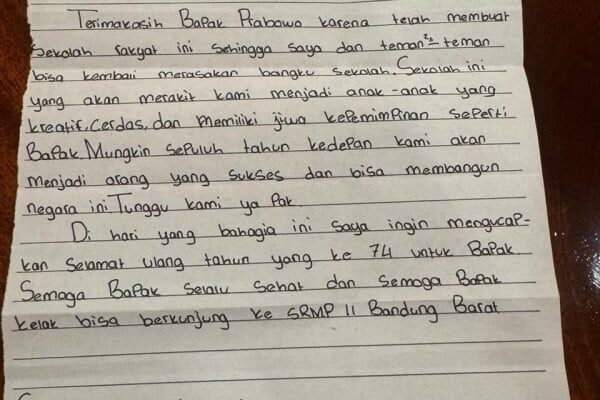 Terimakasih Bapak Prabowo karena telah membuat
Sekolah rakyat ini sehingga saya dan teman²-teman
bisa kembali merasakan bangku sekolah. Sekolah ini
yang akan merakit kami menjadi anak-anak yang
kreatif, cerdas, dan memiliki jiwa kepemimpinan seperti
Bapak. Mungkin sepuluh tahun kedepan kami akan
menjadi orang yang sukses dan bisa membangun
negara ini Tunggu kami ya Pak.
Di hari yang bahagia ini saya ingin mengucap-
kan selamat ulang tahun yang ke 74 untuk Bapak
Semoga Bapak selalu sehat dan semoga Bapak
kelak bisa berkunjung ke SRMP 11 Bandung Barat